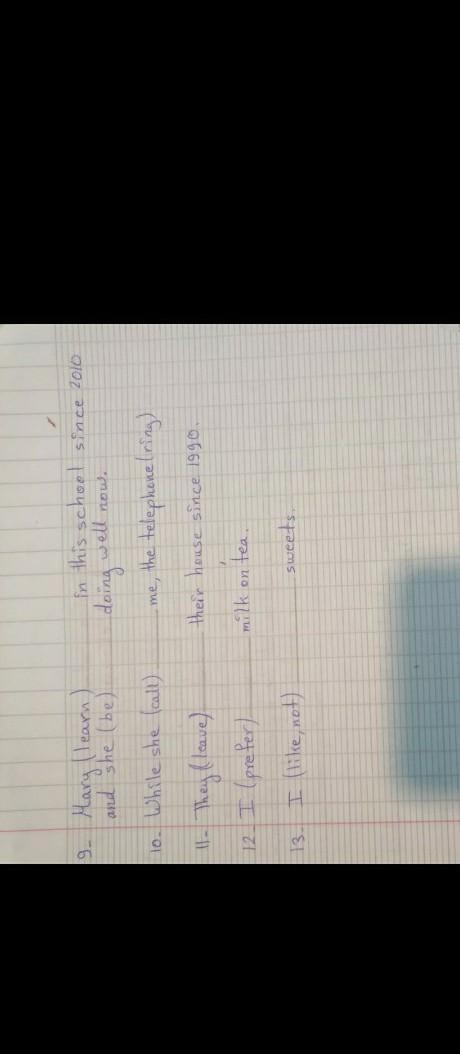 9- Mary (learn) ............ in this school since 2010
and she (be) ............ doing well now.
10- While she (call) ............ me, the telephone (ring)
11- They (leave) ............ their house since 1990.
12- I (prefer) ............ milk on tea.
13- I (like, not) ............ sweets.